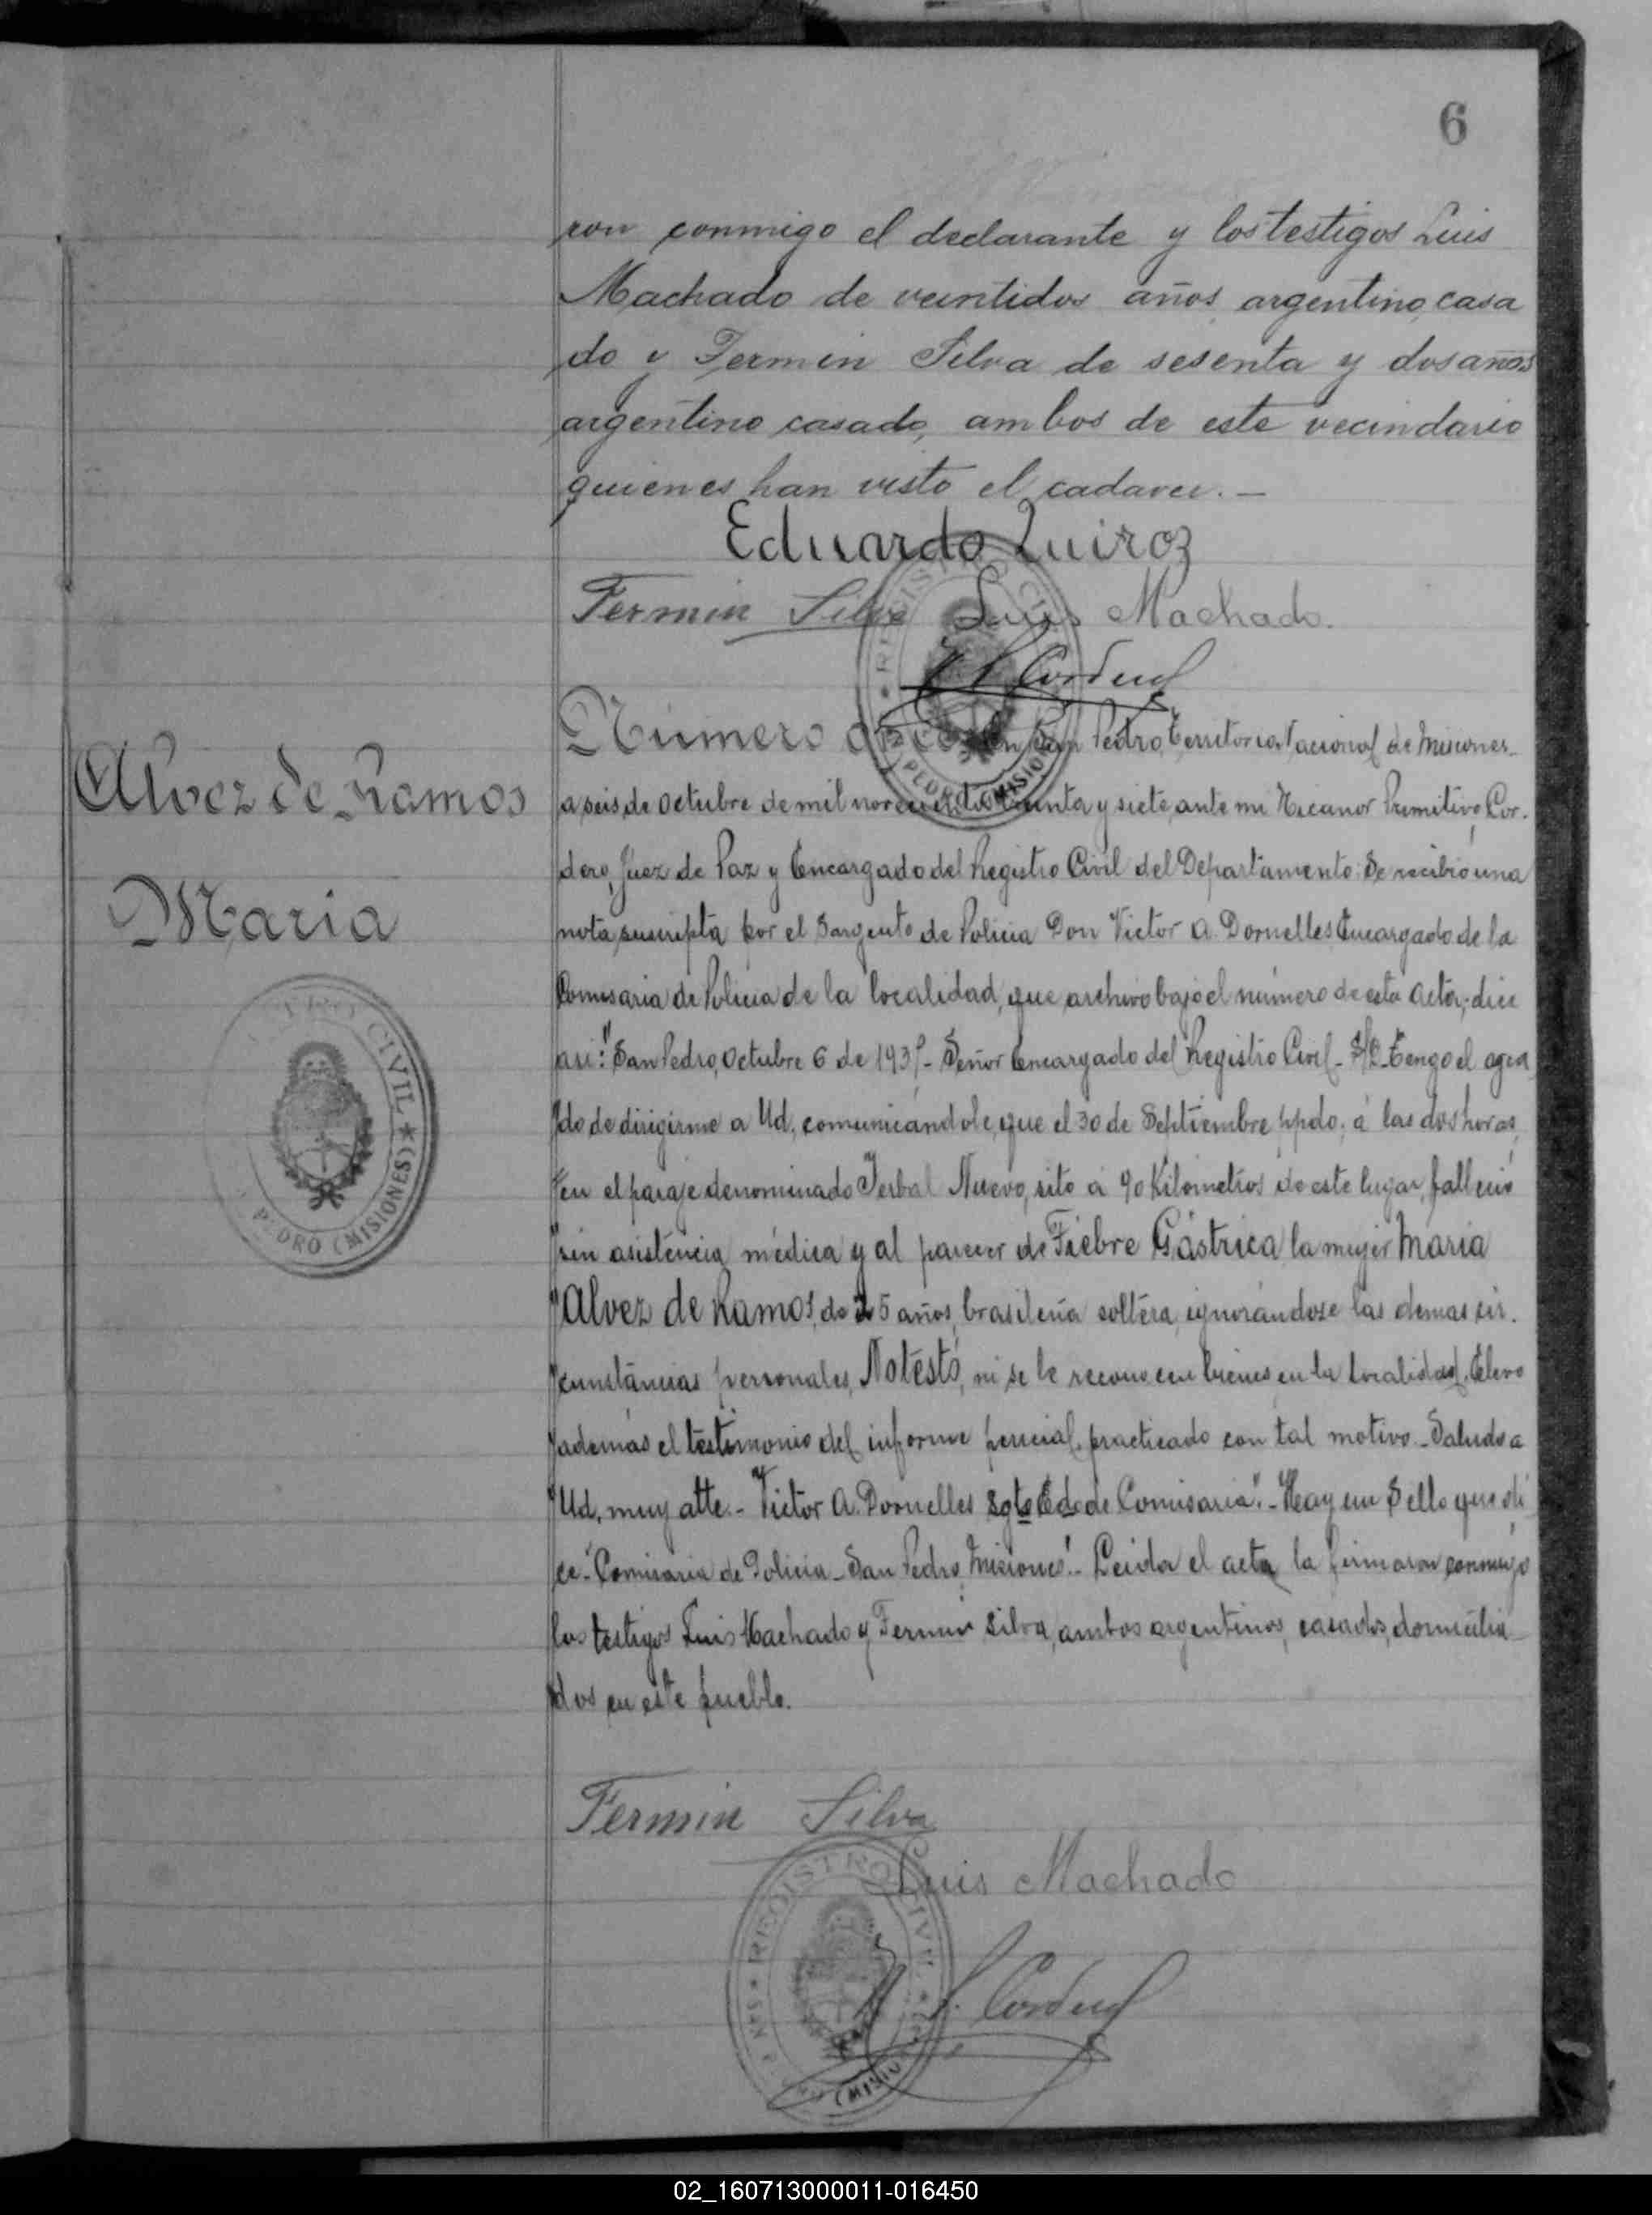 6
ron conmigo el declarante y los testigos Luis
Machado de veintidos años argentino, casa
do y Fermin Silva de sesenta y dos años
argentino casado, ambos de este vecindario
quienes han visto el cadaver. —
Eduardo Quiroz
Fermin Silva Luis Machado.
Cordero
Alvez de Ramos
Maria
REGISTRO CIVIL ★ SAN PEDRO (MISIONES)
Número once En San Pedro, Territorio Nacional de Misiones-
a seis de Octubre de mil novecientos treinta y siete, ante mi Nicanor Primitivo Cor-
dero, Juez de Paz y Encargado del Registro Civil del Departamento: Se recibió una
nota, suscripta por el Sargento de Policia Don Victor A. Dornelles, Encargado de la
Comisaria de Policia de la localidad, que archivo bajo el número de esta acta; dice
asi: "San Pedro, Octubre 6 de 1937- Señor Encargado del Registro Civil- S/D- Tengo el agra
"do de dirigirme a Ud. comunicándole, que el 30 de Septiembre ppdo; á las dos horas
"en el paraje denominado Yerbal Nuevo, sito a 90 Kilometros de este lugar, falleció
"sin asistencia médica y al parecer de Fiebre Gástrica, la mujer María
"Alvez de Ramos, de 25 años, brasileña soltera, ignorándose las demas cir-
"cunstáncias personales, No testó, ni se le reconocen bienes en la localidad. Elevo
"además el testimonio del informe pericial, practicado con tal motivo.- Saludo a
"Ud. muy atte.- Victor A. Dornelles Sgto Edo de Comisaria".- Hay un Sello que di
ce- "Comisaria de Policia- San Pedro, Misiones".- Leida el acta la firmaron conmigo
los testigos Luis Machado y Fermin Silva, ambos argentinos, casados, domicilia-
dos en este pueblo.
Fermin Silva
Luis Machado
Cordero
02_160713000011-016450